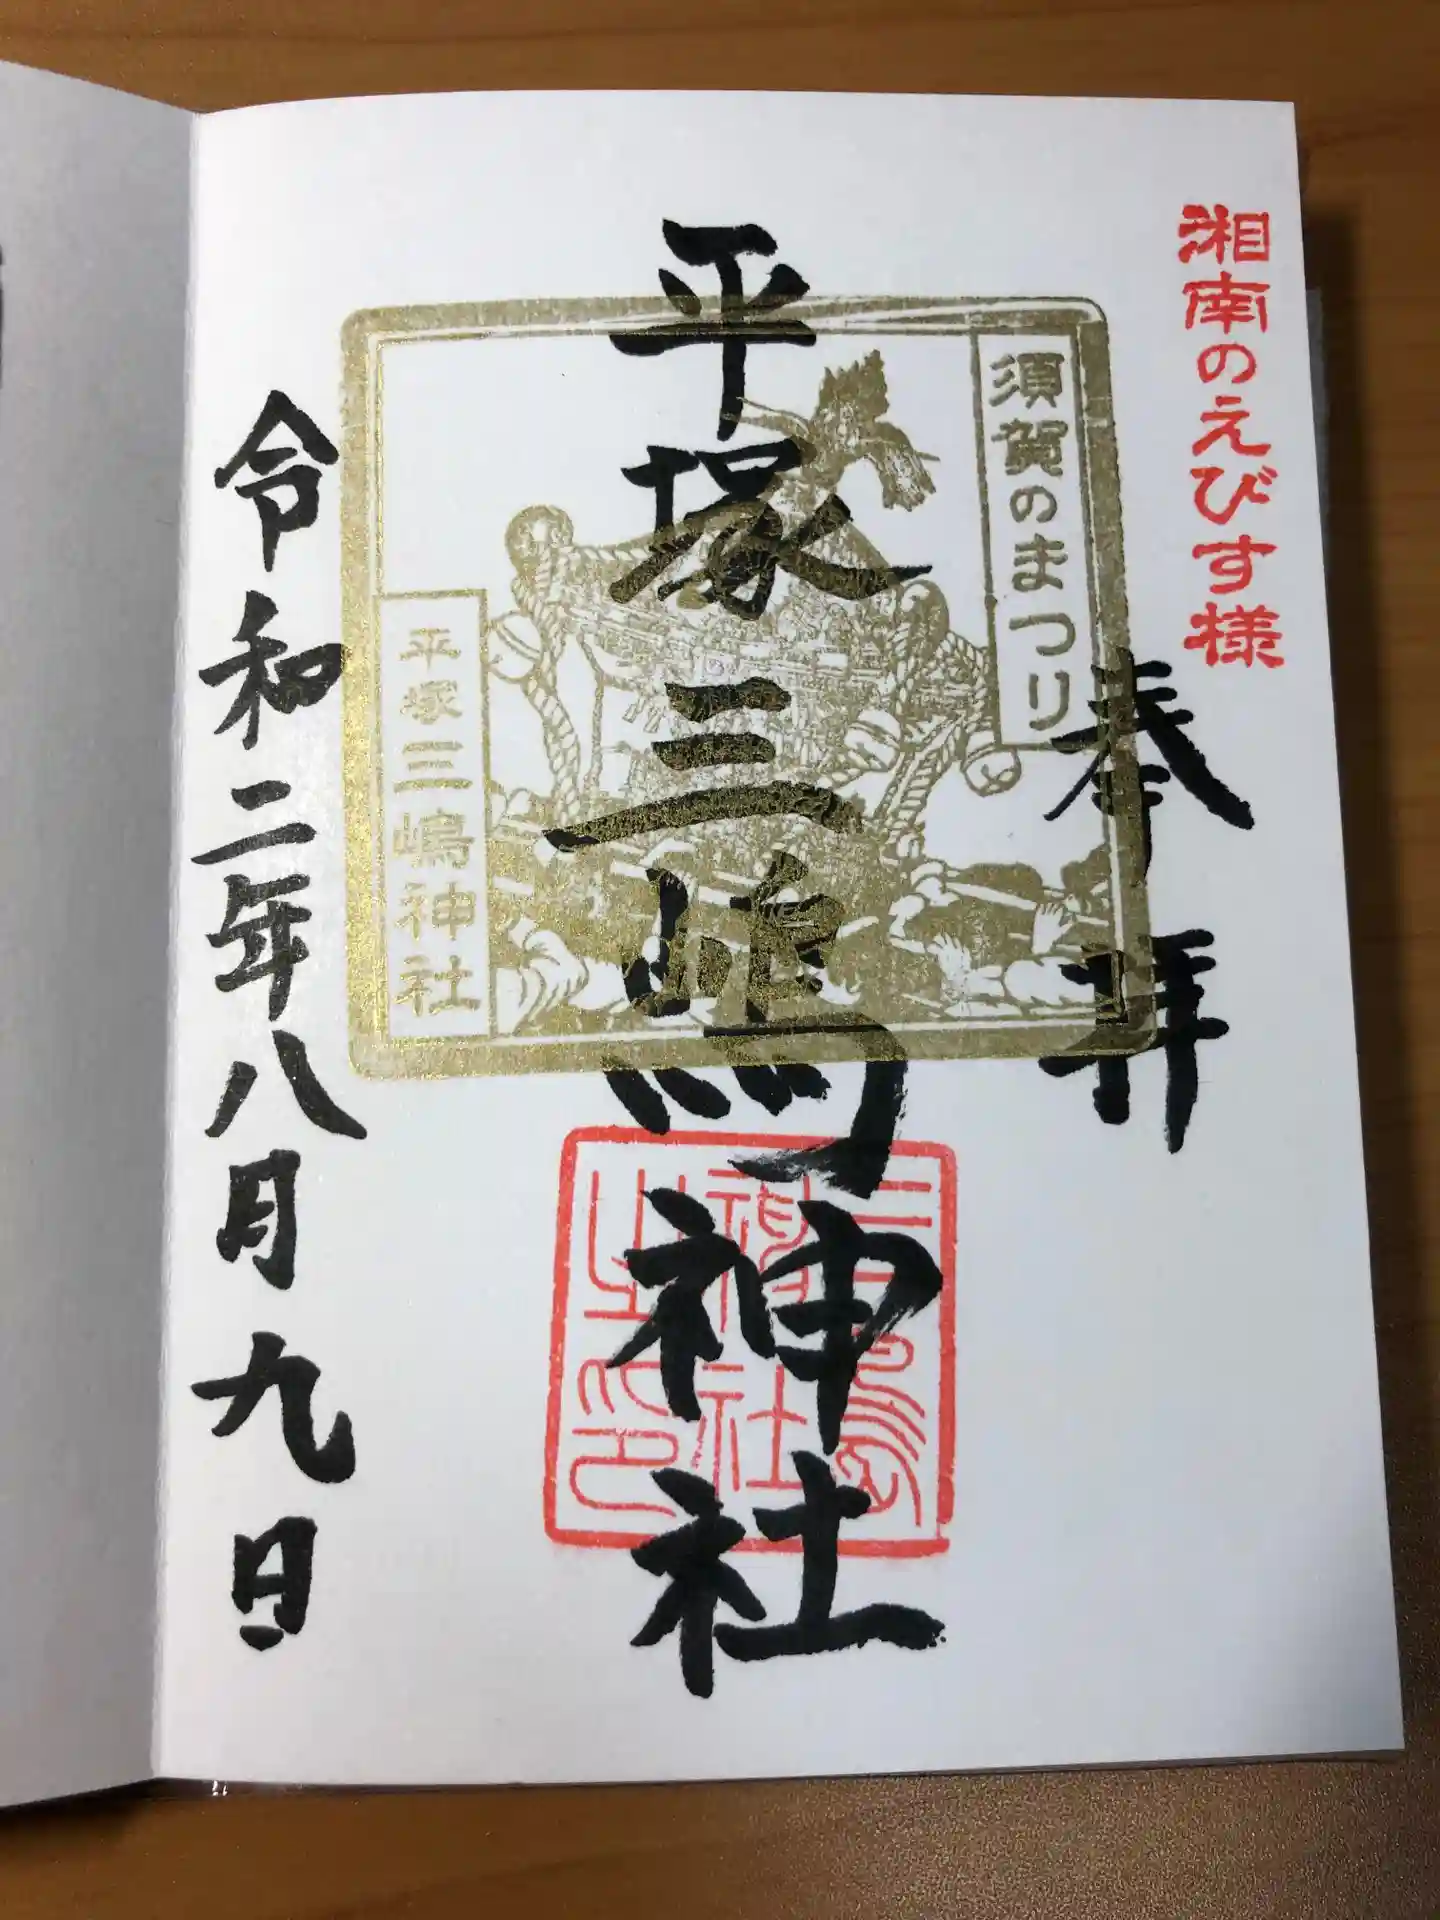 湘南のえびす様
奉拝
須賀のまつり
平塚三嶋神社
平塚三嶋神社
三嶋神社之印
令和二年八月九日